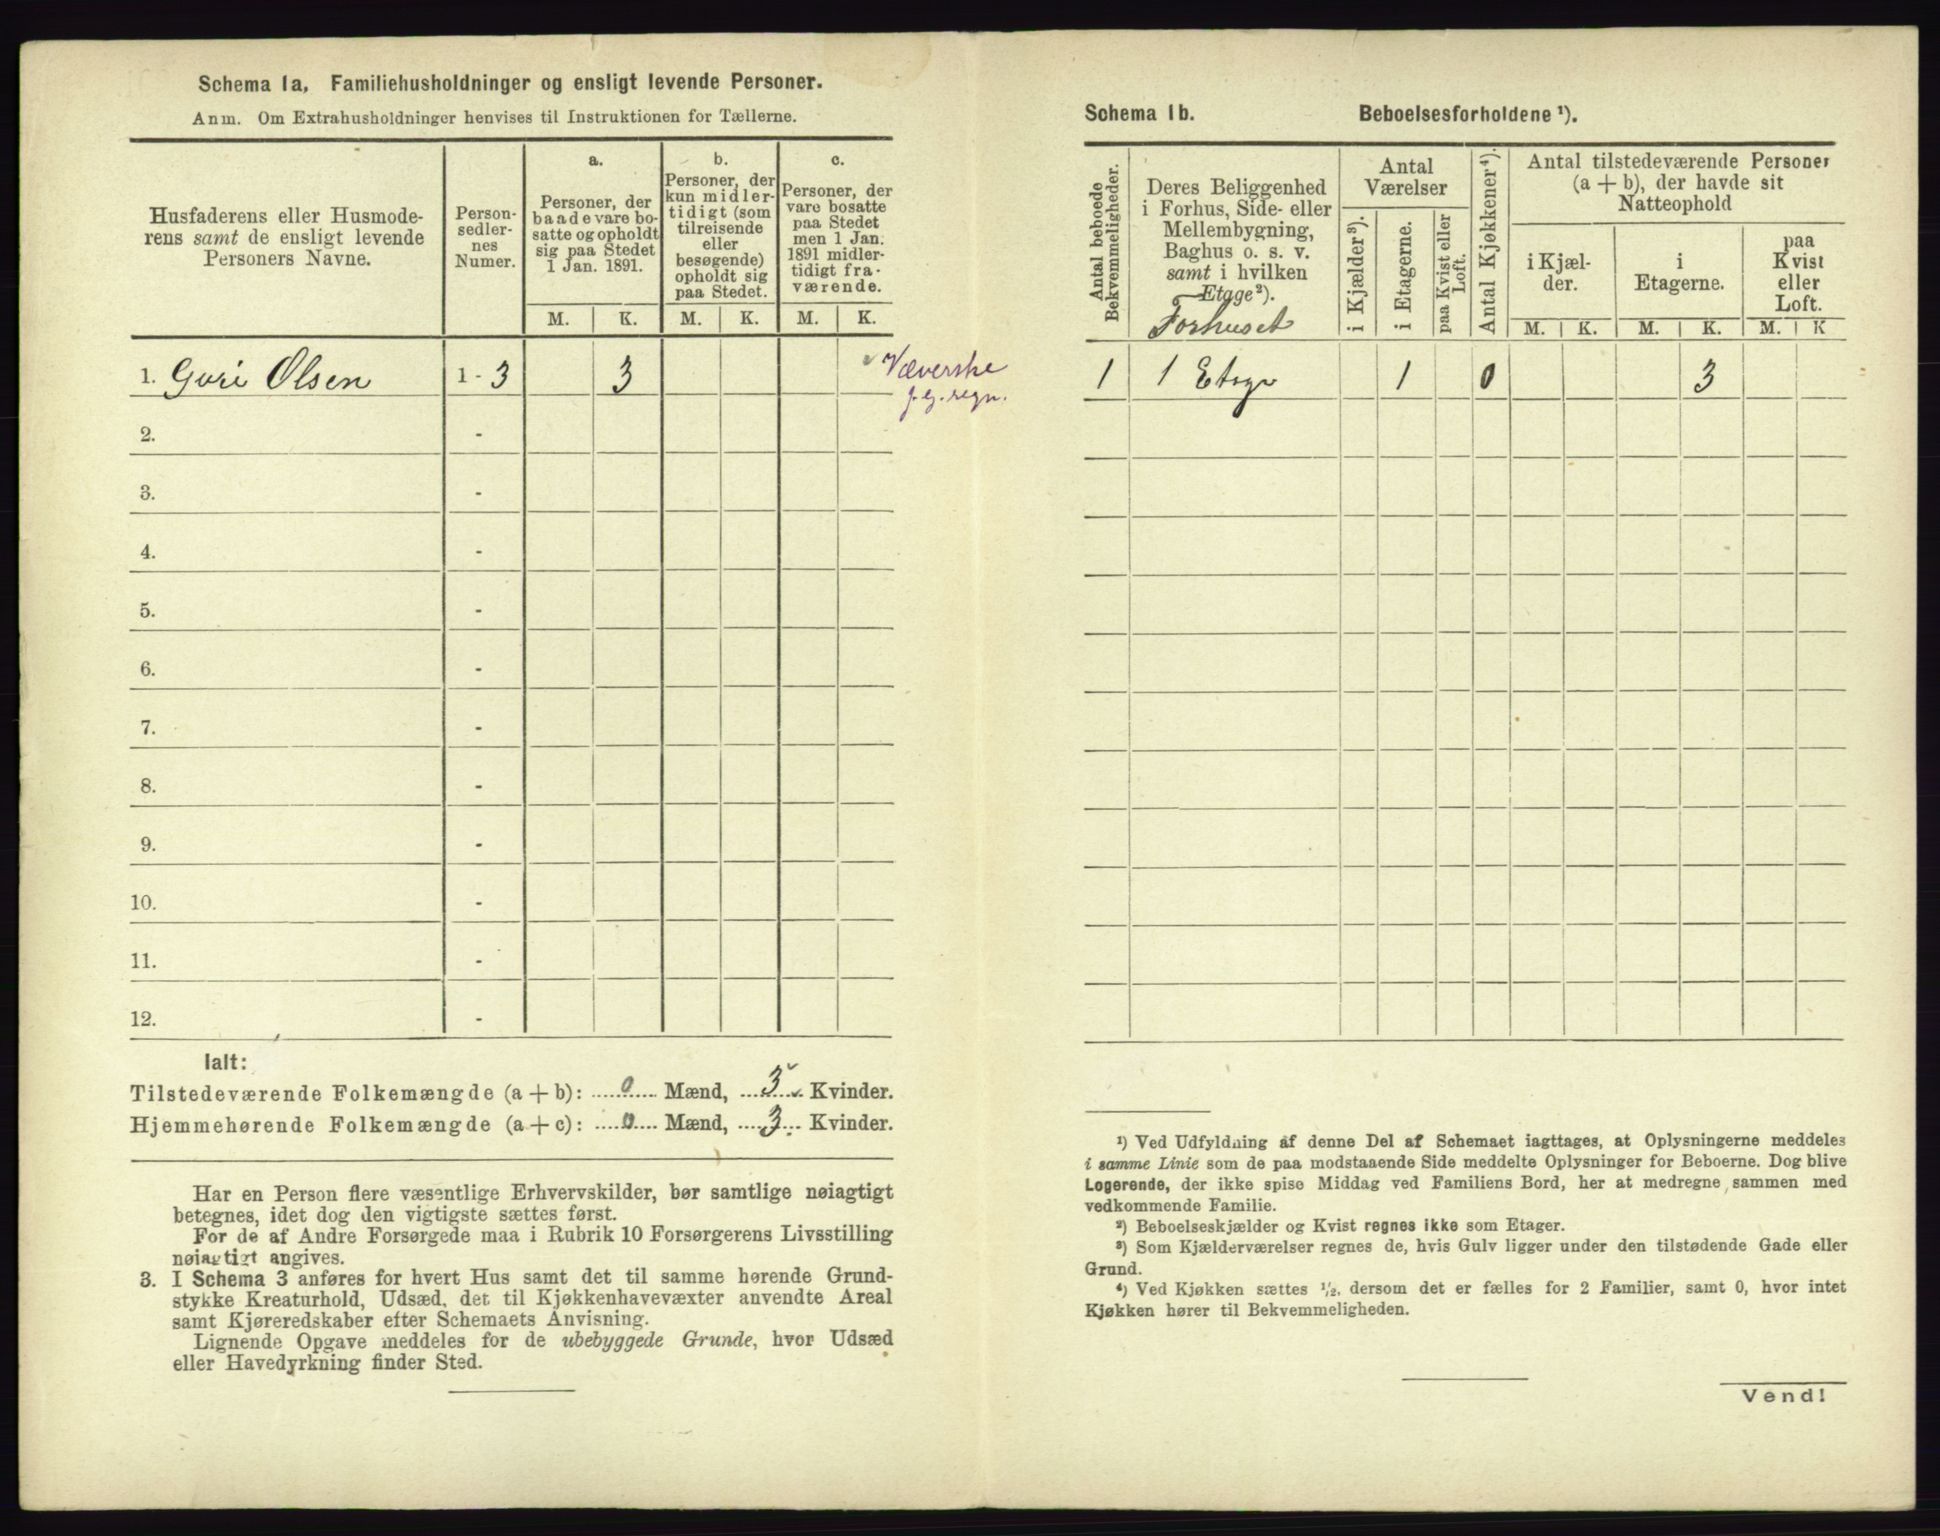 Schema 1a, Familiehusholdninger og ensligt levende Personer.
Anm. Om Extrahusholdninger henvises til Instruktionen for Tællerne.
Husfaderens eller Husmode-
rens samt de ensligt levende
Personers Navne.
Person-
sedler-
nes
Numer.
a.
Personer, der
baade vare bo-
satte og opholdt
sig paa Stedet
1 Jan. 1891.
b.
Personer, der
kun midler-
tidigt (som
tilreisende
eller
besøgende)
opholdt sig
paa Stedet.
c.
Personer, der
vare bosatte
paa Stedet
men 1 Jan.
1891 midler-
tidigt fra-
værende.
M. K. M. K. M. K.
1. Guri Olsen 1 - 3 3
Væverske
f. g. regn.
2. -
3. -
4. -
5. -
6. -
7. -
8. -
9. -
10. -
11. -
12. -
Ialt:
Tilstedeværende Folkemængde (a + b): 0 Mænd, 3 Kvinder.
Hjemmehørende Folkemængde (a + c): 0 Mænd, 3 Kvinder.
Har en Person flere væsentlige Erhvervskilder, bør samtlige nøiagtigt
betegnes, idet dog den vigtigste sættes først.
For de af Andre Forsørgede maa i Rubrik 10 Forsørgerens Livsstilling
nøiagtigt angives.
3. I Schema 3 anføres for hvert Hus samt det til samme hørende Grund-
stykke Kreaturhold, Udsæd, det til Kjøkkenhavevæxter anvendte Areal
samt Kjøreredskaber efter Schemaets Anvisning.
Lignende Opgave meddeles for de ubebyggede Grunde, hvor Udsæd
eller Havedyrkning finder Sted.
Schema 1b. Beboelsesforholdene ¹).
Antal beboede
Bekvemmeligheder.
Deres Beliggenhed
i Forhus, Side- eller
Mellembygning,
Baghus o. s. v.
samt i hvilken
Etage²).
Forhuset
Antal
Værelser
i Kjælder³).
i Etagerne.
paa Kvist eller
Loft.
Antal Kjøkkener⁴).
Antal tilstedeværende Personer
(a + b), der havde sit
Natteophold
i Kjæl-
der.
i
Etagerne.
paa
Kvist
eller
Loft.
M. K. M. K. M. K
1 1 Etage 1 0 3
¹) Ved Udfyldning af denne Del af Schemaet iagttages, at Oplysningerne meddeles
i samme Linie som de paa modstaaende Side meddelte Oplysninger for Beboerne. Dog blive
Logerende, der ikke spise Middag ved Familiens Bord, her at medregne sammen med
vedkommende Familie.
²) Beboelseskjælder og Kvist regnes ikke som Etager.
³) Som Kjælderværelser regnes de, hvis Gulv ligger under den tilstødende Gade eller
Grund.
⁴) Ved Kjøkken sættes ½, dersom det er fælles for 2 Familier, samt 0, hvor intet
Kjøkken hører til Bekvemmeligheden.
Vend!